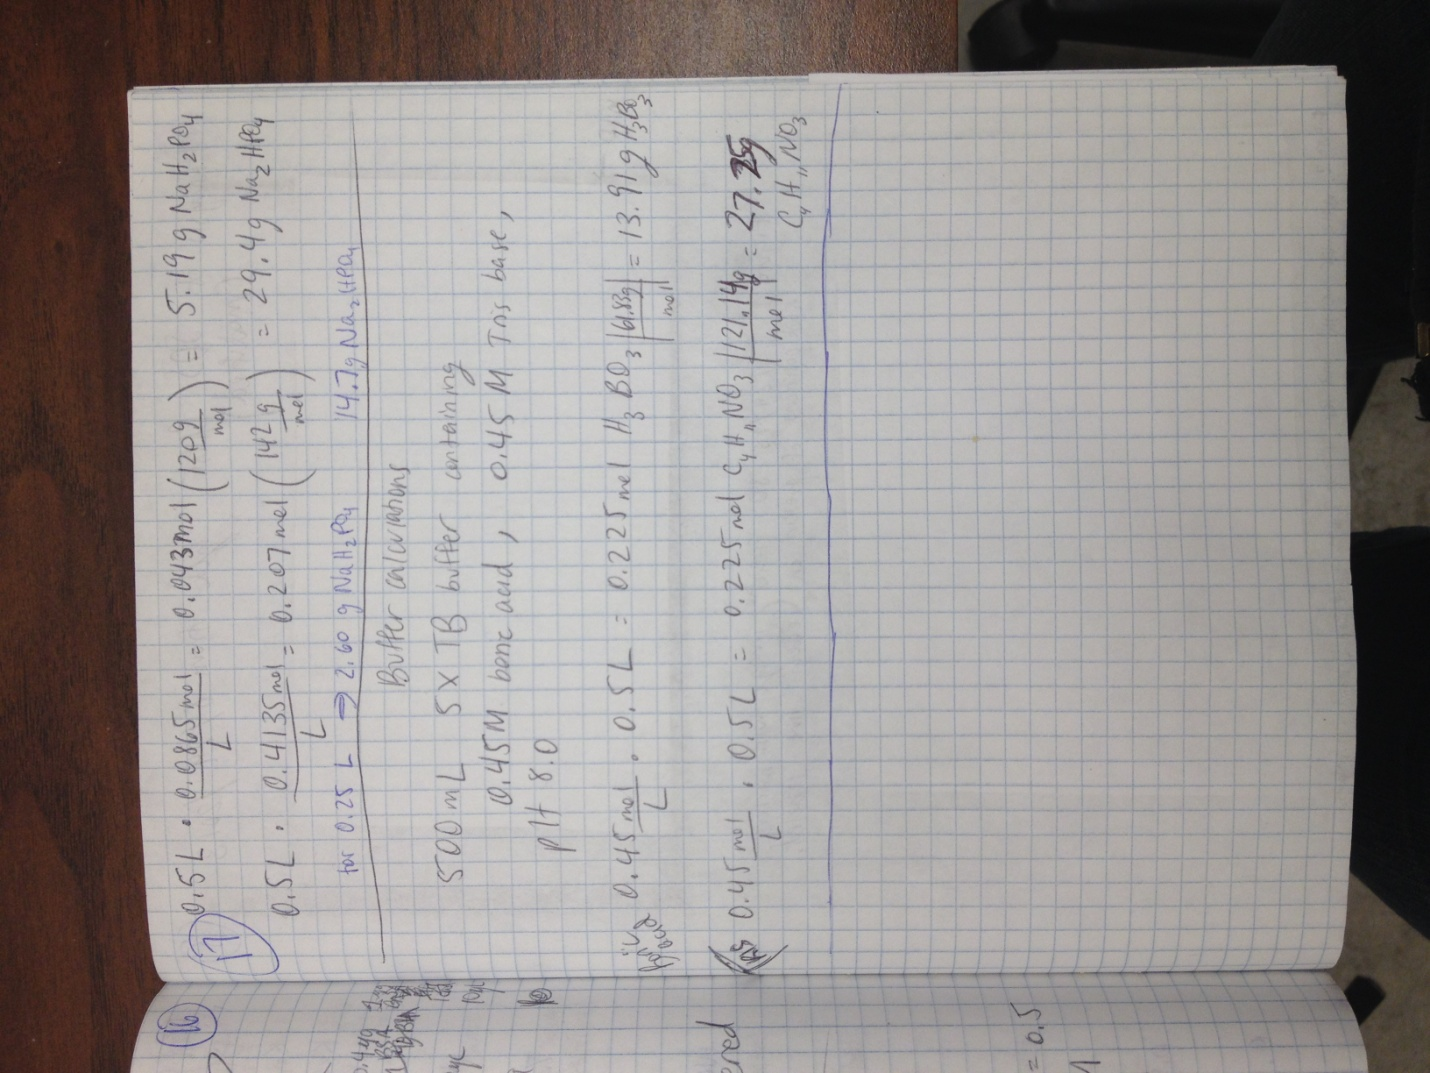 17
0.5L · 0.0865mol/L = 0.043mol (120g/mol) = 5.19g NaH₂PO₄
0.5L · 0.4135mol/L = 0.207mol (142g/mol) = 29.4g Na₂HPO₄
for 0.25 L → 2.60 g NaH₂PO₄ 14.7g Na₂HPO₄
Buffer calculations
500mL 5X TB buffer containing
0.45M boric acid, 0.45M Tris base,
pH 8.0
boric acid 0.45mol/L · 0.5L = 0.225mol H₃BO₃ | 61.83g/mol = 13.91g H₃BO₃
0.45mol/L · 0.5L = 0.225mol C₄H₁₁NO₃ | 121.14g/mol = 27.25g
C₄H₁₁NO₃
16
ered
= 0.5